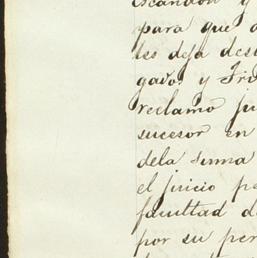 Escandon y
para que
les deja des
gado. y
reclamo ju
sucesor en
dela suma
el juicio pe
facultad d
por su per